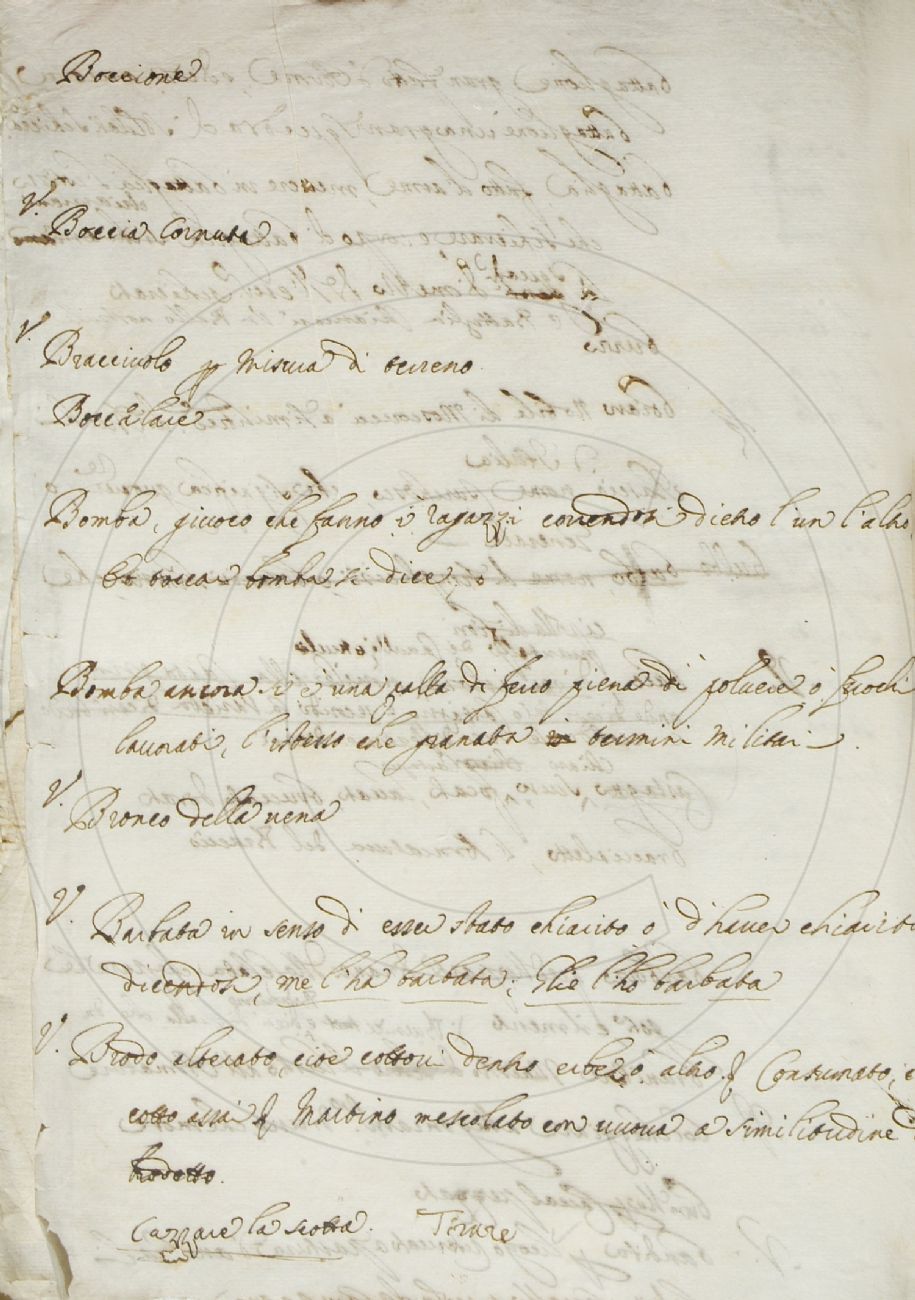 Boccione
V. Boccia Cornuta
V. Bracciuolo p Misura di terreno
Boccalaie
Bomba, giuoco che fanno i ragazzi correndosi dietro l'un l'altro,
tocca bomba si dice.
Bomba ancora si è una palla di ferro piena di poluere ò fuochi
lauorati, l'istesso che granata in termini Militari.
V. Bronco della uena
V. Barbata in senso di esser stato chiarito ò d'hauer chiarito
dicendosi, me l'ha barbata; Glie l'ho barbata
V. Brodo alterato, cioè cottoui dentro erbe ò altro. Consumato,
cotto assai Martino mescolato con uuoua a similitudine
brodetto.
Cazzare la scotta. Tirare